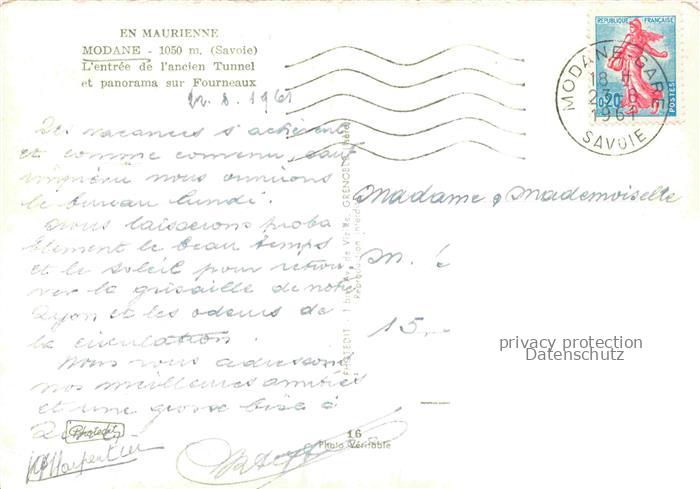 EN MAURIENNE
MODANE - 1050 m. (Savoie)
L'entrée de l'ancien Tunnel
et panorama sur Fourneaux
22.8.1961
REPUBLIQUE FRANÇAISE
0,20
POSTES
MODANE-GARE
18 H
23-8
1961
SAVOIE
Les vacances s'achèvent
et comme convenu, sauf
imprévu nous ouvrirons
le bureau lundi.
Nous laisserons proba
blement le beau temps
et le soleil pour retrou
ver la grisaille de notre
Lyon et les odeurs de
la circulation.
Nous vous adressons
nos meilleures amitiés
et une grosse bise à
Photedit
Madame & Mademoiselle
M. é
15,
PHOTEDIT - GRENOBLE
Reproduction interdite
privacy protection
Datenschutz
16
Photo Véritable